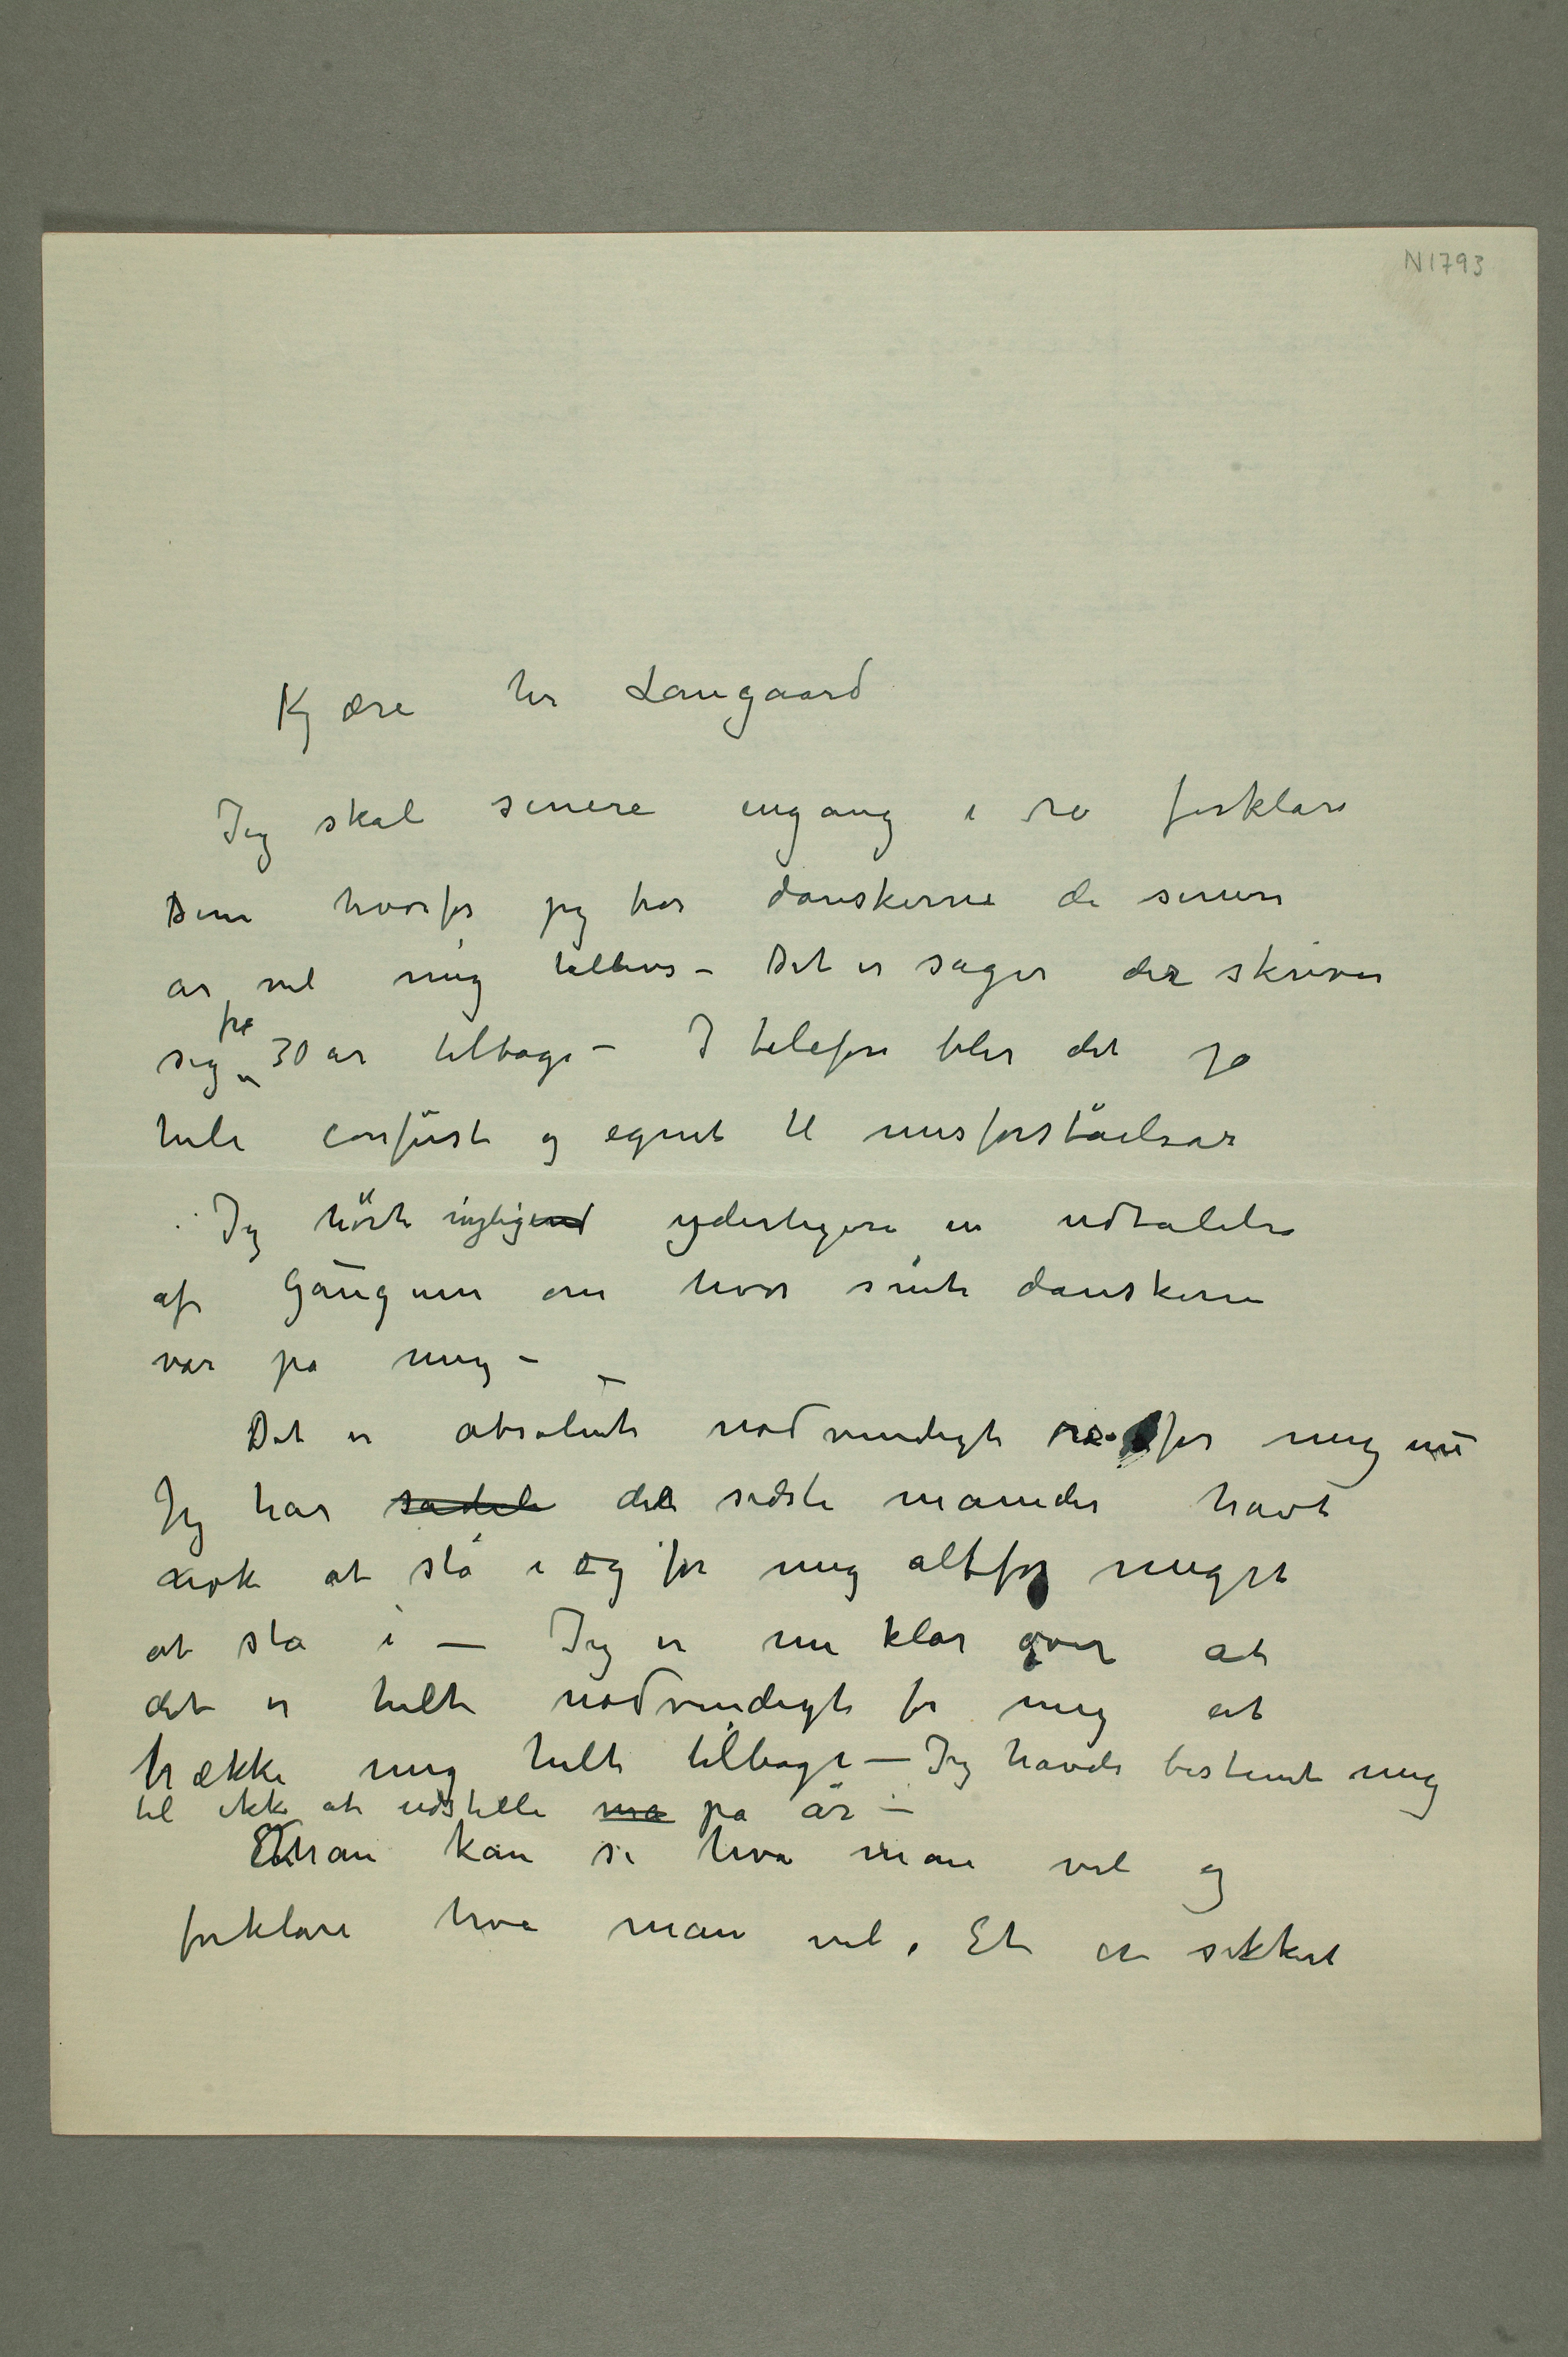 N1793
Kjære hr Langaard
Jeg skal senere engang i ro forklare
Dem hvorfor jeg tror danskerne de senere
år vil mig tillivs – Det er sager der skriver
sig fra 30 år tilbage – I telefon blir det jo
hele confüst og egnet til misforståelser
Jeg hørte nyligend yderligere en udtalelse
af Gauguin om hvor sinte danskerne
var på mig –
Det er absolut nødvendigt for mig nu
Jeg har de sidste måneder havt
nok at stå i og for mig altfor meget
at stå i – Jeg er nu klar over at
det er helt nødvendigt for mig at
trække mig helt tilbage – Jeg havde bestemt mig
til ikke at udstille på år –
Man kan si hva man vil og
forklare hva man vil, Et er sikkert